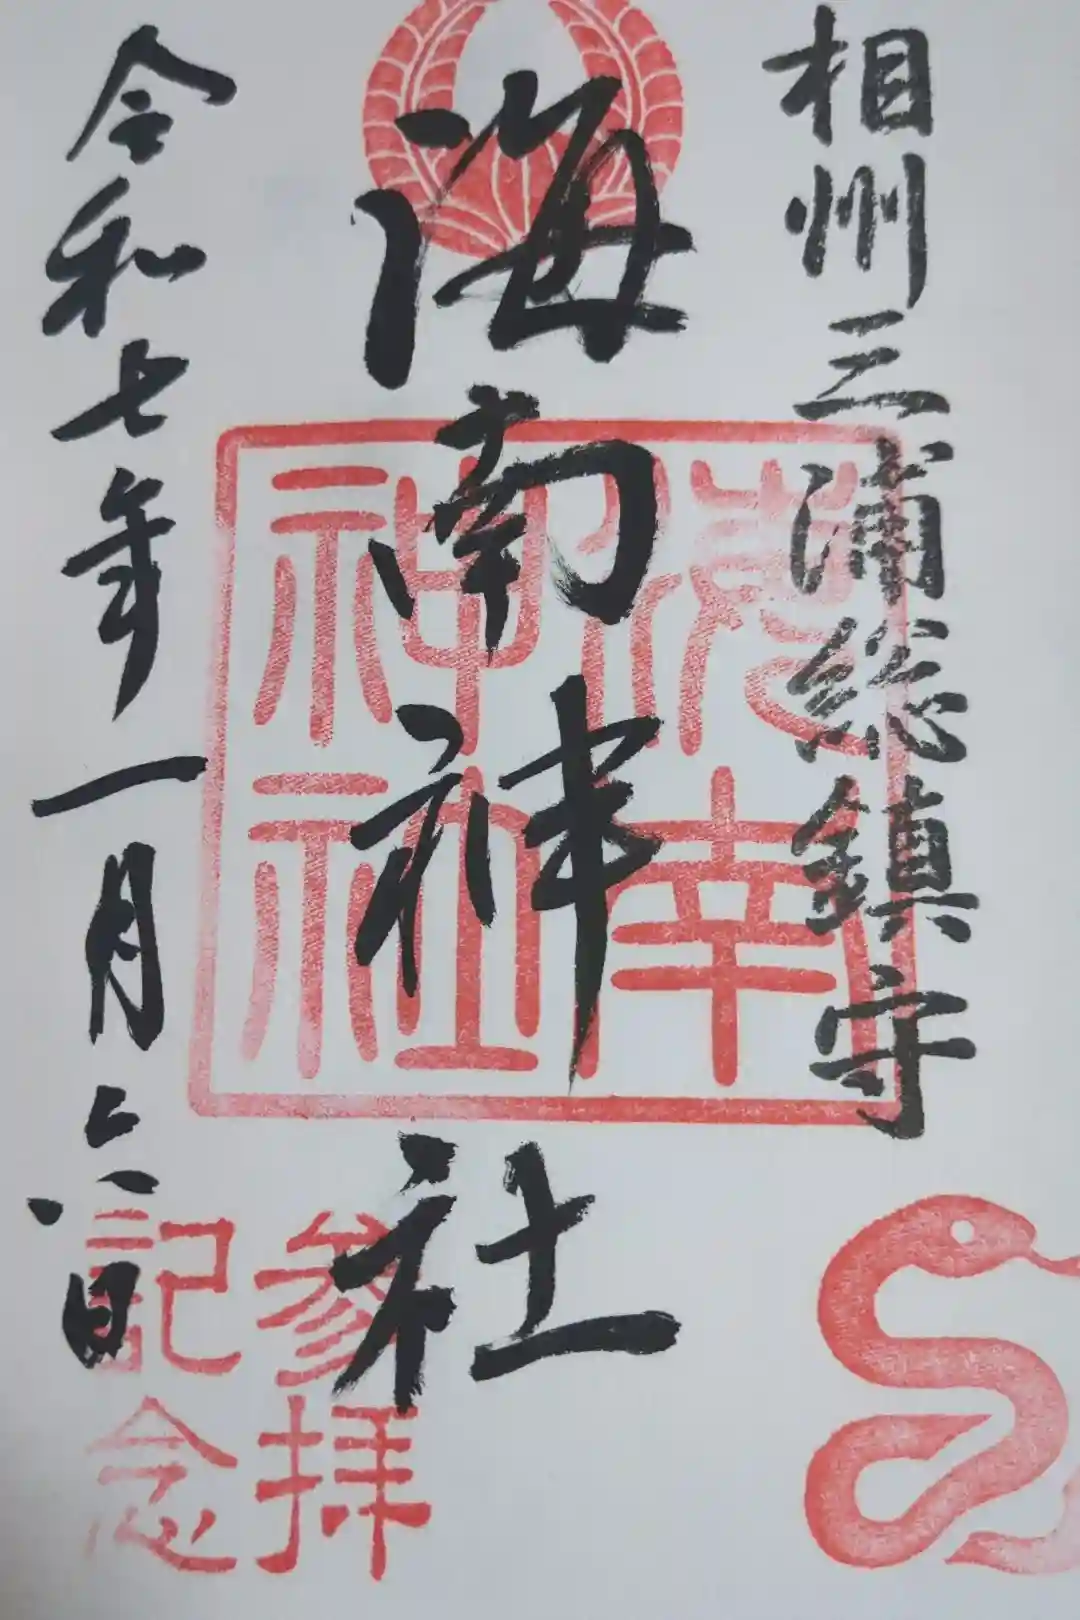 相州三浦総鎮守
海南神社
海南神社
参拝記念
令和七年一月六日